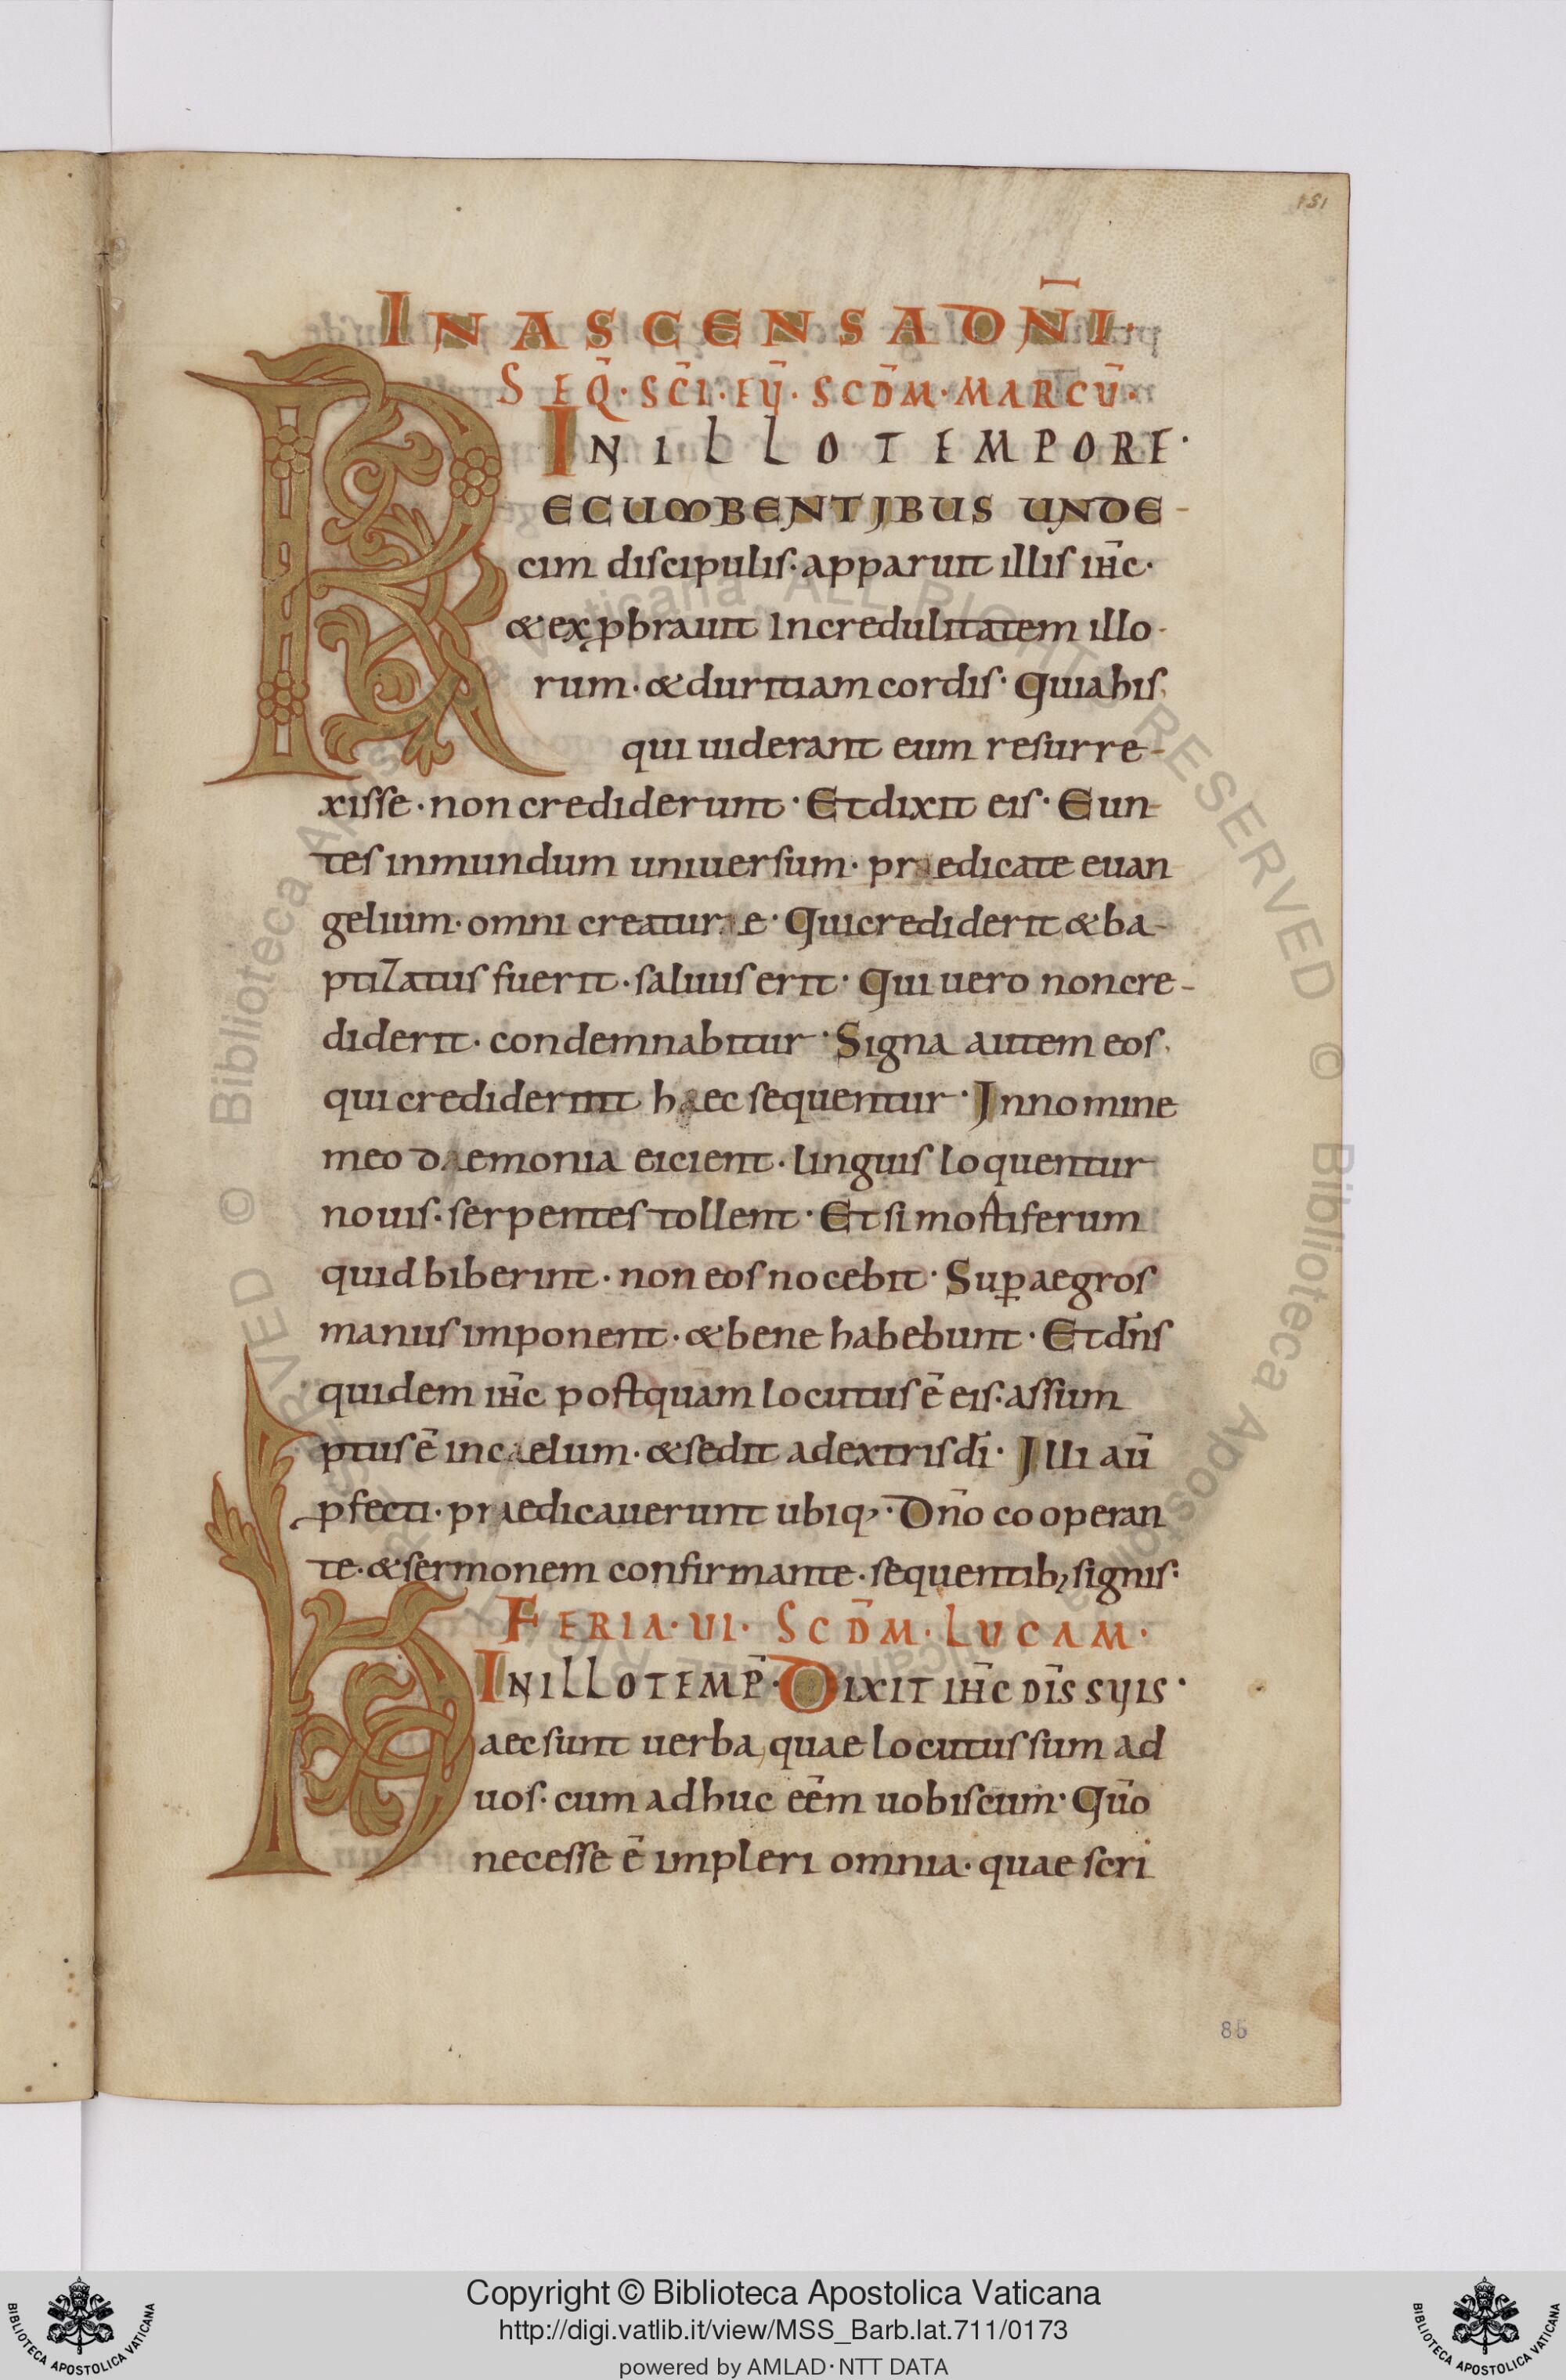 151
IN ASCENSA DÑI·
SEQ̄·SC̄I·EỸ·SCD̄M·MARCŪ·
IN ILLO TEMPORE·
RECUMBENTIBUS UNDE-
cim discipulis·apparuit illis ih̄c·
& exp̱brauit Incredulitatem illo-
rum·& duritiam cordis· Quia his,
qui uiderant eum resurre-
xisse·non crediderunt· Et dixit eis· Eun-
tes in mundum uniuersum· praedicate euan
gelium·omni creaturae· Qui crediderit & ba-
ptizatus fuerit·saluus erit· Qui uero non cre-
diderit·condemnabitur· Signa autem eos,
qui crediderint haec sequentur· In nomine
meo daemonia eicient·linguis loquentur
nouis·serpentes tollent· Et si mostiferum
quid biberint·non eos nocebit· Sup̱ aegros
manus imponent·& bene habebunt· Et dn̄s
quidem ih̄c postquam locutus ē eis·assum
ptus ē in caelum·& sedit a dextris dī· Illi aū
p̱fecti·praedicauerunt ubiq;· Dn̄o cooperan
te·& sermonem confirmante·sequentib; signis:
FERIA·UI· SCD̄M·LUCAM·
IN ILLO TEMP̄· DIXIT IH̄C DĪS SUIS·
Haec sunt uerba, quae locutus sum ad
uos·cum adhuc eēm uobiscum· Qūo
necesse ē impleri omnia·quae scri
85
© Biblioteca Apostolica Vaticana, ALL RIGHTS RESERVED
© Biblioteca Apostolica Vaticana, ALL RIGHTS RESERVED
Copyright © Biblioteca Apostolica Vaticana
http://digi.vatlib.it/view/MSS_Barb.lat.711/0173
powered by AMLAD·NTT DATA
BIBLIOTECA APOSTOLICA VATICANA
BIBLIOTECA APOSTOLICA VATICANA